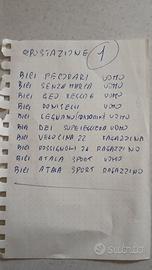 POSTAZIONE 1
BICI PECORARI UOMO
BICI SENZA MARCA UOMO
BICI GEO VECCHIE UOMO
BICI DONISELLI UOMO
BICI LEGNANO UOMO
BICI DEI SUPERLEGGERA UOMO
BICI VELOCINA 22 RAGAZZINA
BICI ROSSIGNOLI 20 RAGAZZINO
BICI ATALA SPORT UOMO
BICI ATALA SPORT RAGAZZINO
Subito